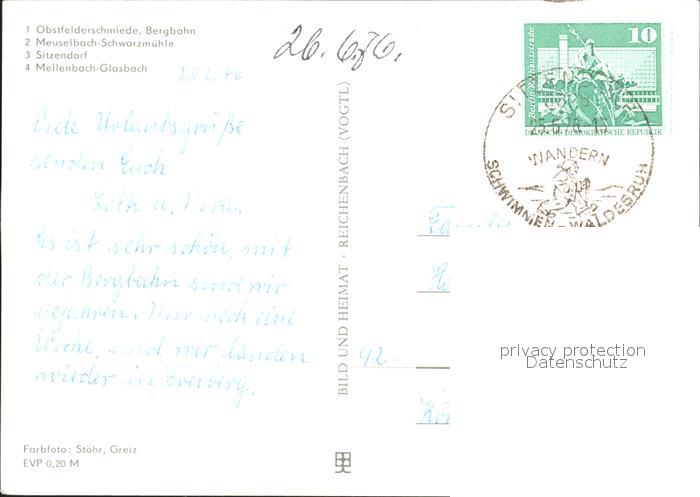 1 Obstfelderschmiede, Bergbahn
2 Meuselbach-Schwarzmühle
3 Sitzendorf
4 Mellenbach-Glasbach
26.6.76.
25.6.76
Viele Urlaubsgrüße
senden Euch
Lotte u.
Es ist sehr schön, mit
der Bergbahn sind wir
gefahren. Nur noch eine
Woche, und wir landen
wieder in Freiberg.
Farbfoto: Stöhr, Greiz
EVP 0,20 M
BILD UND HEIMAT · REICHENBACH (VOGTL)
10
DEUTSCHE DEMOKRATISCHE REPUBLIK
WANDERN
SCHWIMMEN - WALDESRUH
Familie
92
privacy protection
Datenschutz